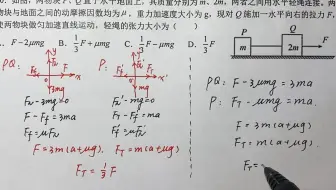 如图,两物块P、Q置于水平地面上,其质量分别为m、2m,两者之间用水平轻绳连接。两
物块与地面之间的动摩擦因数均为μ,重力加速度大小为g,现对Q施加一水平向右的拉力F
使两物块做匀加速直线运动,轻绳的张力大小为( )
F-2μmg B. 1/3F+μmg C. 1/3F-μmg D. 1/3F
P Q
m 2m F
PQ: P:
F_N-3mg=0 F_N'-mg=0
F-F_f=3ma F_T-F_f'=ma
F_f=μF_N F_f'=μF_N'
F=3m(a+μg) F_T=m(a+μg)
F_T=1/3F
PQ: F-3μmg=3ma
P: F_T-μmg=ma.
F=3m(a+μg)
F_T=m(a+μg).
F_T=